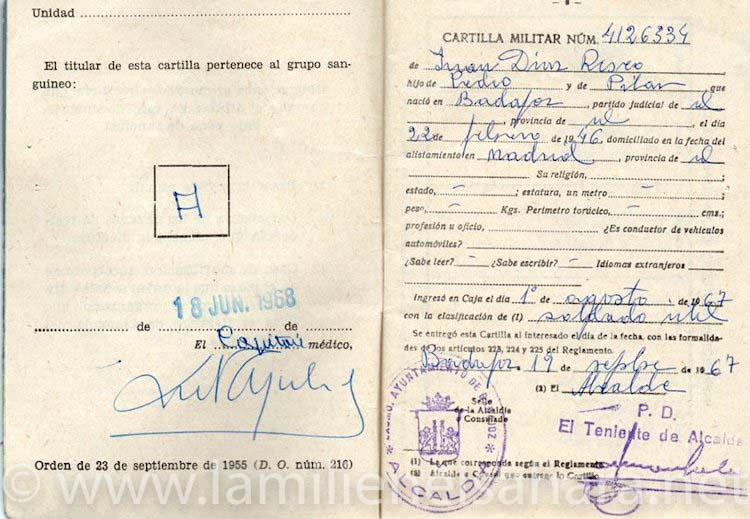 Unidad
El titular de esta cartilla pertenece al grupo san-
guíneo:
A
18 JUN. 1968
de de
El Capitán médico,
Orden de 23 de septiembre de 1955 (D. O. núm. 216)
CARTILLA MILITAR NÚM. 4126334
de Juan Díaz Risco
hijo de Pedro y de Pilar, que
nació en Badajoz, partido judicial de id
, provincia de id, el día
22 de febrero de 1946, domiciliado en la fecha del
alistamiento en Madrid, provincia de id
Su religión,
estado, - ; estatura, un metro -
peso, - Kgs. Perímetro torácico, - cms.;
profesión u oficio, ¿Es conductor de vehículos
automóviles?
¿Sabe leer? - ¿Sabe escribir? - Idiomas extranjeros
Ingresó en Caja el día 1º de agosto de 1967
con la clasificación de (1) soldado útil
Se entregó esta Cartilla al interesado el día de la fecha, con las formalida-
des de los artículos 223, 224 y 225 del Reglamento.
Badajoz 19 de sepbre de 1967
(2) El Alcalde
Sello
de la Alcaldía
o Consulado
P. D.
El Teniente de Alcalde
AYUNTAMIENTO DE BADAJOZ
ALCALDIA
(1) La que corresponda según el Reglamento.
(2) Alcalde o Cónsul que entregue la Cartilla
© www.lamilienelsahara.net